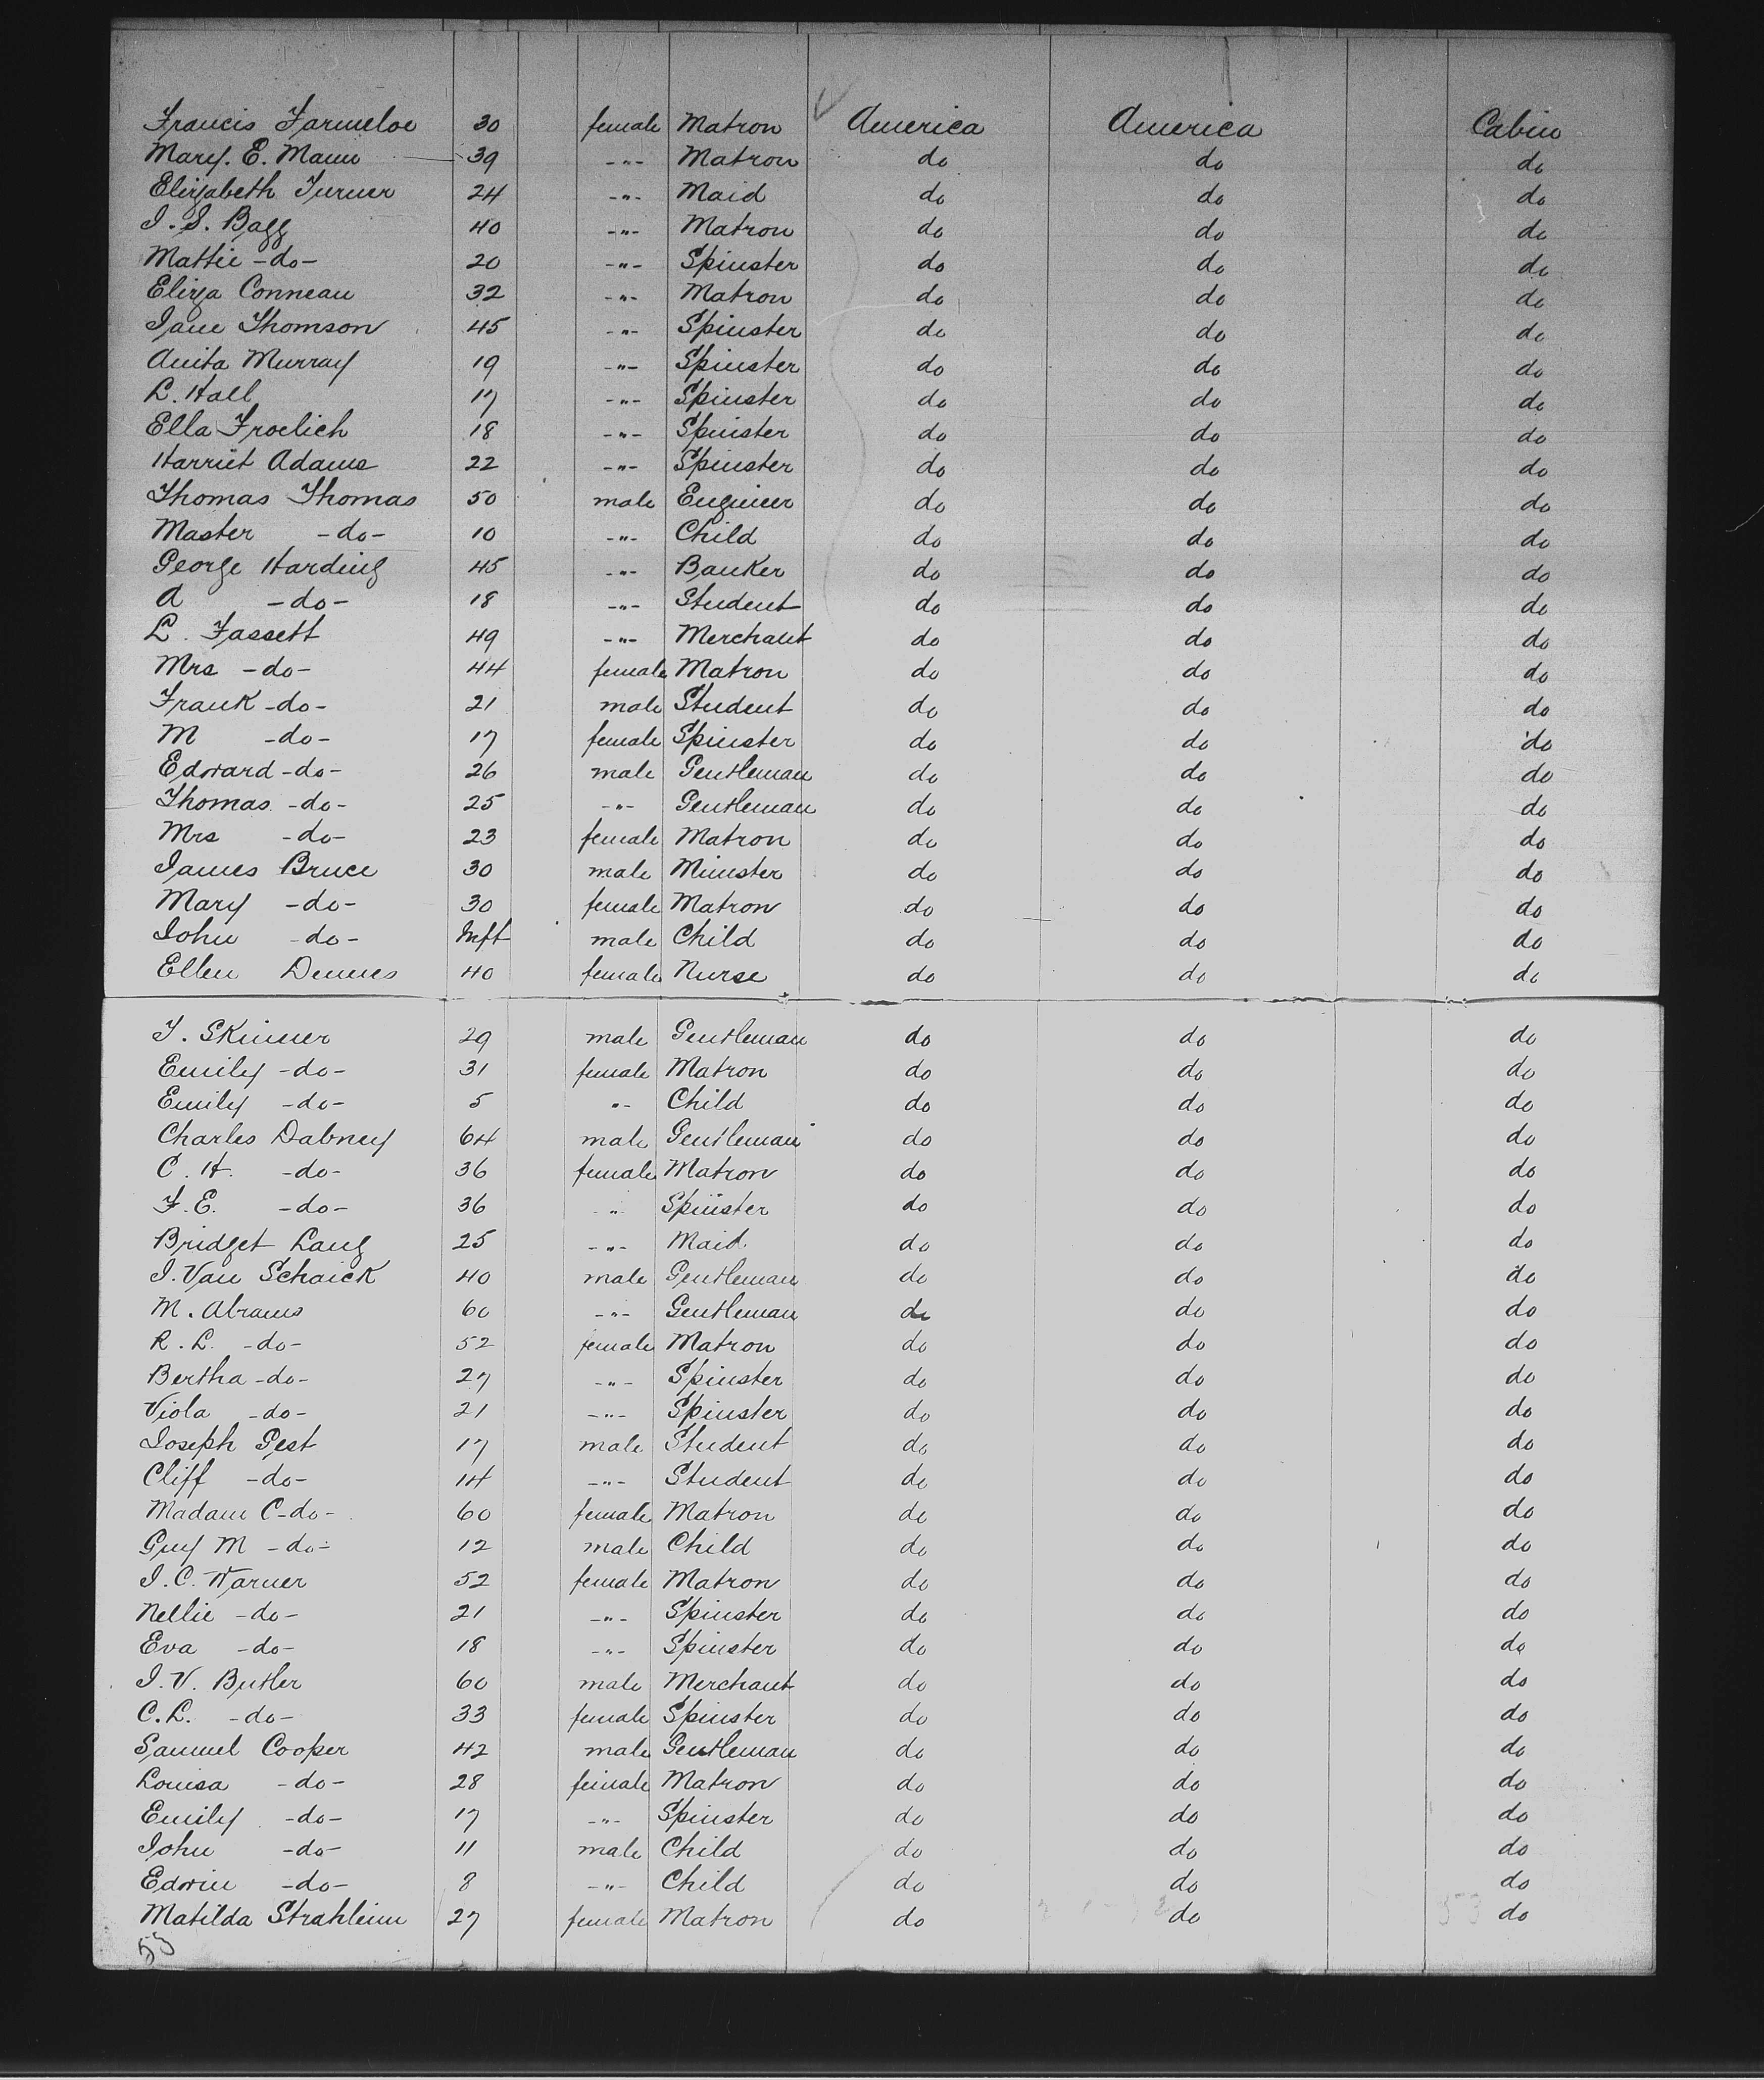 Francis Farmeloe 30 female Matron America America Cabin
Mary. E. Mann 39 -"- Matron do do do
Elizabeth Turner 24 -"- Maid do do do
I. S. Bagg 40 -"- Matron do do do
Mattie -do- 20 -"- Spinster do do do
Eliza Conneau 32 -"- Matron do do do
Jane Thomson 45 -"- Spinster do do do
Anita Murray 19 -"- Spinster do do do
L. Hall 17 -"- Spinster do do do
Ella Froelich 18 -"- Spinster do do do
Harriet Adams 22 -"- Spinster do do do
Thomas Thomas 50 male Engineer do do do
Master -do- 10 -"- Child do do do
George Harding 45 -"- Banker do do do
A -do- 18 -"- Student do do do
L. Fassett 49 -"- Merchant do do do
Mrs -do- 44 female Matron do do do
Frank -do- 21 male Student do do do
M -do- 17 female Spinster do do do
Edward -do- 26 male Gentleman do do do
Thomas -do- 25 -"- Gentleman do do do
Mrs -do- 23 female Matron do do do
James Bruce 30 male Minister do do do
Mary -do- 30 female Matron do do do
John -do- Inft male Child do do do
Ellen Dennes 40 female Nurse do do do
T. Skinner 29 male Gentleman do do do
Emily -do- 31 female Matron do do do
Emily -do- 5 "- Child do do do
Charles Dabney 64 male Gentleman do do do
C. H. -do- 36 female Matron do do do
F. E. -do- 36 -"- Spinster do do do
Bridget Lang 25 -"- Maid do do do
J. Van Schaick 40 male Gentleman do do do
M. Abrams 60 -"- Gentleman do do do
R. L. -do- 52 female Matron do do do
Bertha -do- 27 -"- Spinster do do do
Viola -do- 21 -"- Spinster do do do
Joseph Gest 17 male Student do do do
Cliff -do- 14 -"- Student do do do
Madam C -do- 60 female Matron do do do
Guy M -do- 12 male Child do do do
J. C. Warner 52 female Matron do do do
Nellie -do- 21 -"- Spinster do do do
Eva -do- 18 -"- Spinster do do do
J. V. Butler 60 male Merchant do do do
C. L. -do- 33 female Spinster do do do
Samuel Cooper 42 male Gentleman do do do
Louisa -do- 28 female Matron do do do
Emily -do- 17 -"- Spinster do do do
John -do- 11 male Child do do do
Edwin -do- 8 -"- Child do do do
Matilda Strahleim 27 female Matron do do do
53